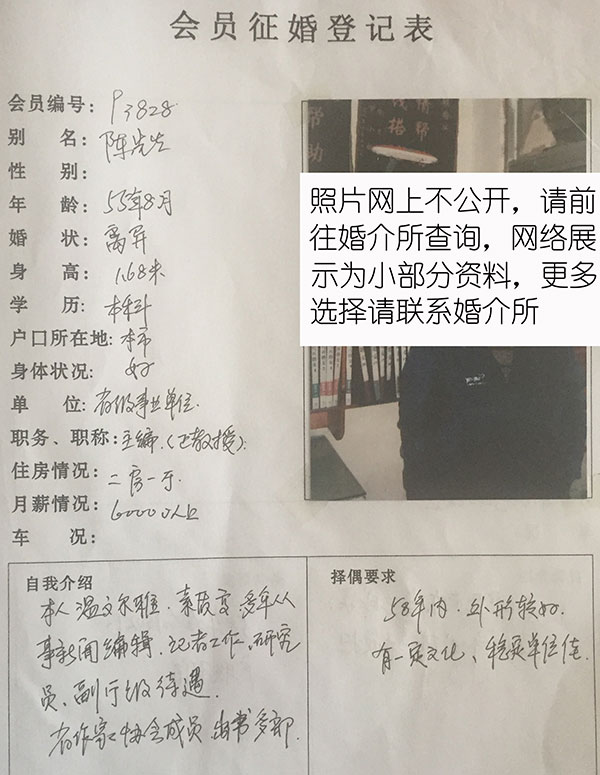 会员征婚登记表
会员编号: P3828
别 名: 陈先生
性 别:
年 龄: 55年8月
婚 状: 离异
身 高: 1.68米
学 历: 本科
户口所在地: 本市
身体状况: 好
单 位: 省级事业单位.
职务、职称: 主编.(正教授).
住房情况: 二房一厅.
月薪情况: 6000以上
车 况:
照片网上不公开，请前
往婚介所查询，网络展
示为小部分资料，更多
选择请联系婚介所
自我介绍
本人温文尔雅.素质高.多年从
事新闻编辑、记者工作.研究
员、副厅级待遇.
省作家协会成员.出书多部.
择偶要求
58年内.外形较好.
有一定文化、稳定单位佳.